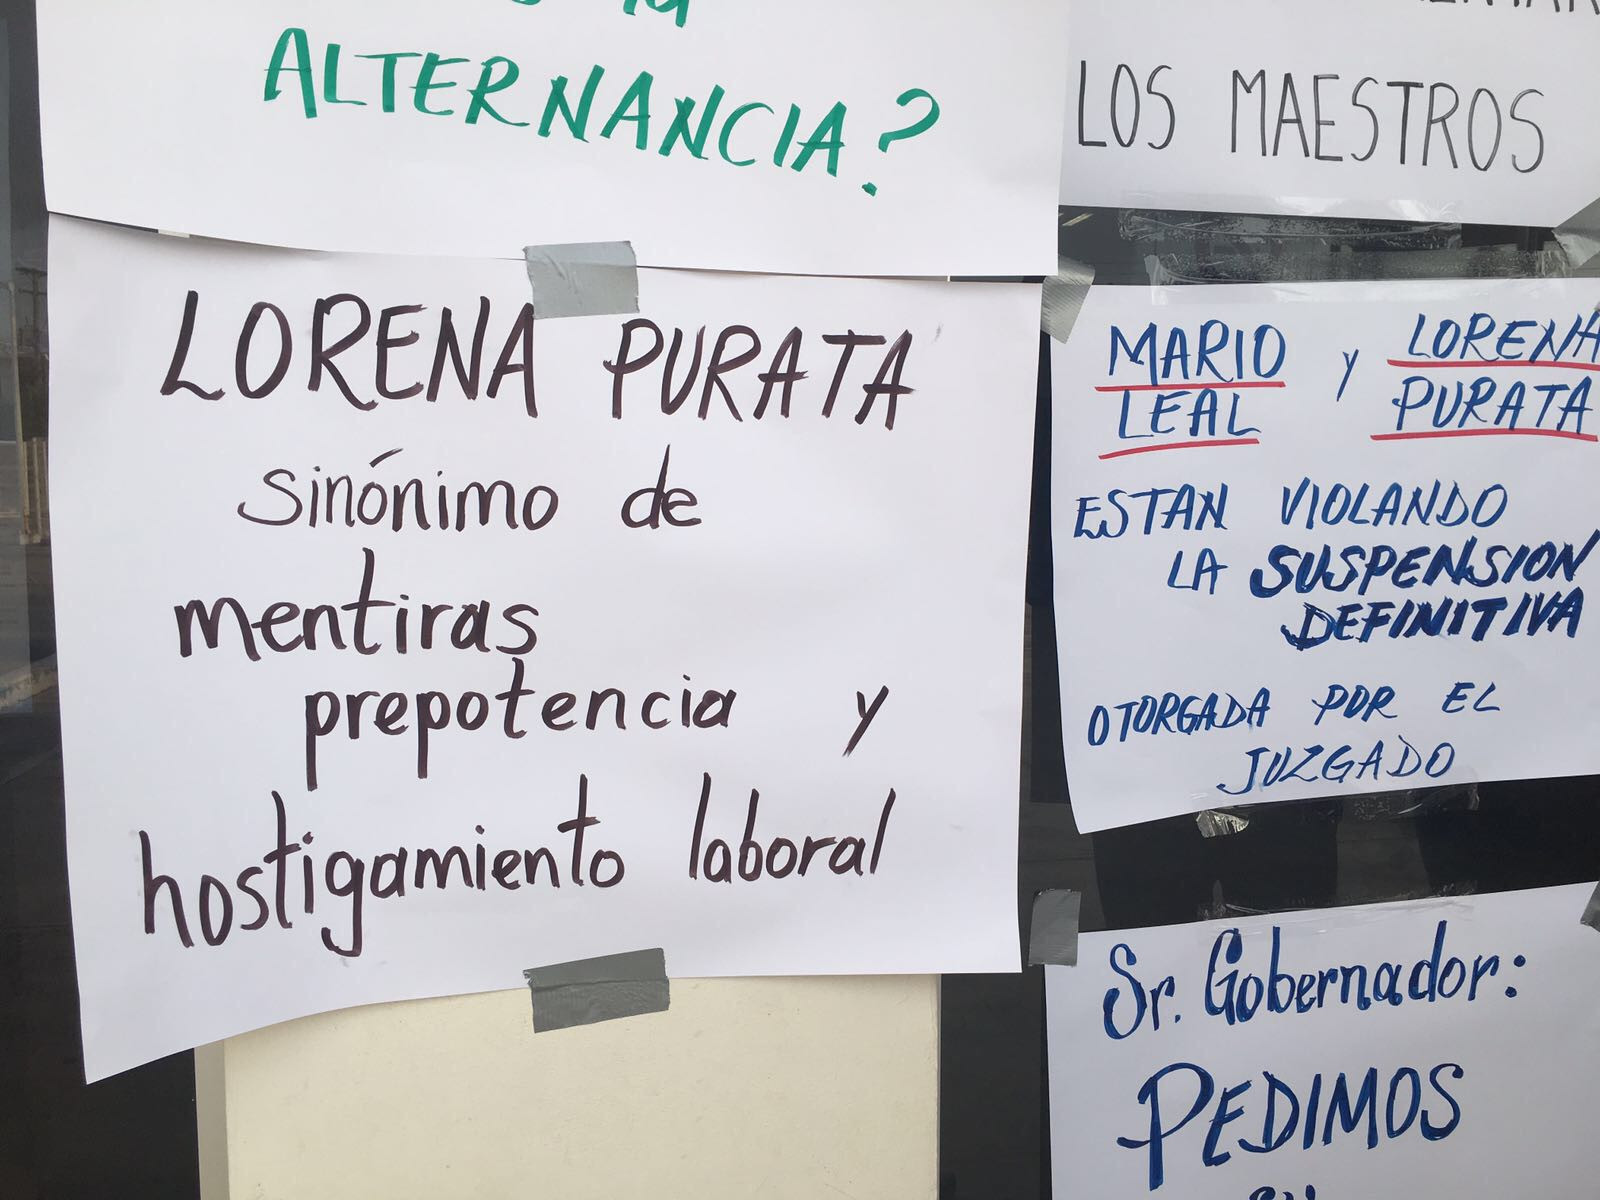 la
ALTERNANCIA?
LORENA PURATA
sinónimo de
mentiras
prepotencia y
hostigamiento laboral
LOS MAESTROS
MARIO LEAL y LORENA PURATA
ESTAN VIOLANDO
LA SUSPENSION
DEFINITIVA
OTORGADA POR EL
JUZGADO
Sr. Gobernador:
PEDIMOS